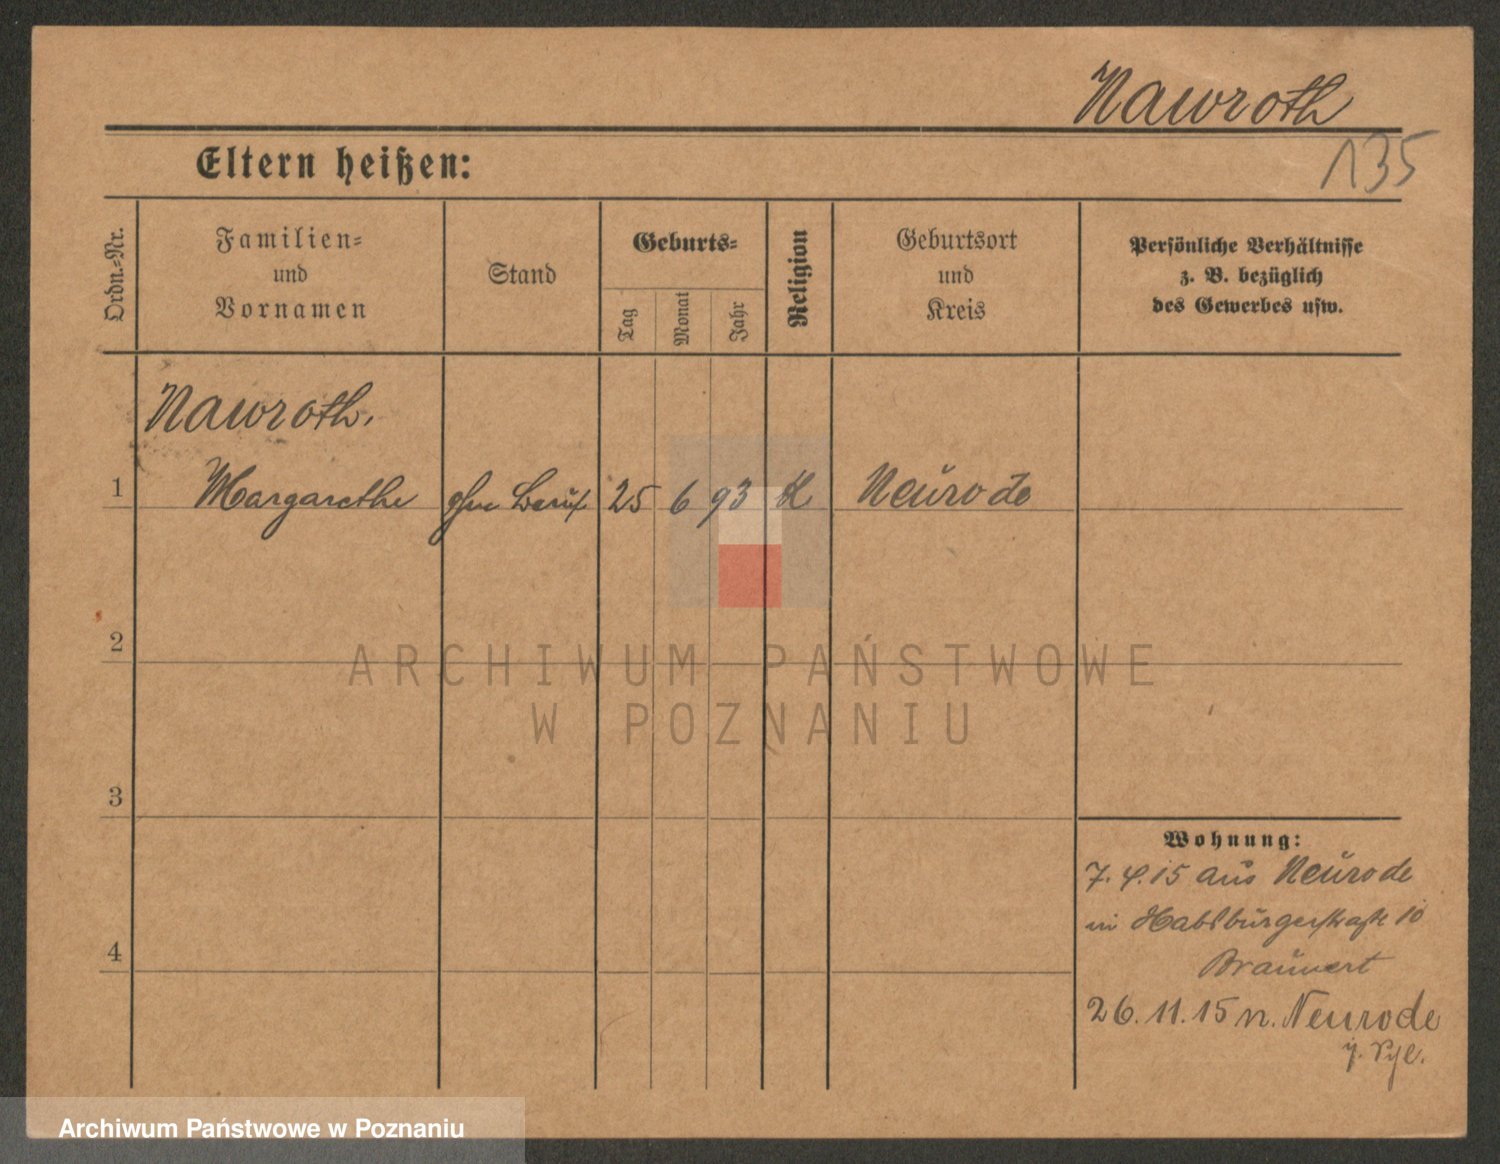 Nawroth
135
Eltern heißen:
Ordn.-Nr.
Familien-
und
Vornamen
Stand
Geburts-
Tag
Monat
Jahr
Religion
Geburtsort
und
Kreis
Persönliche Verhältnisse
z. B. bezüglich
des Gewerbes usw.
Nawroth,
1 Margarethe ohne Beruf 25 6 93 K Neurode
2
ARCHIWUM PAŃSTWOWE
W POZNANIU
3
Wohnung:
7.4.15 aus Neurode
in Habsburgerstraße 10
4
26.11.15 n. Neurode
Archiwum Państwowe w Poznaniu